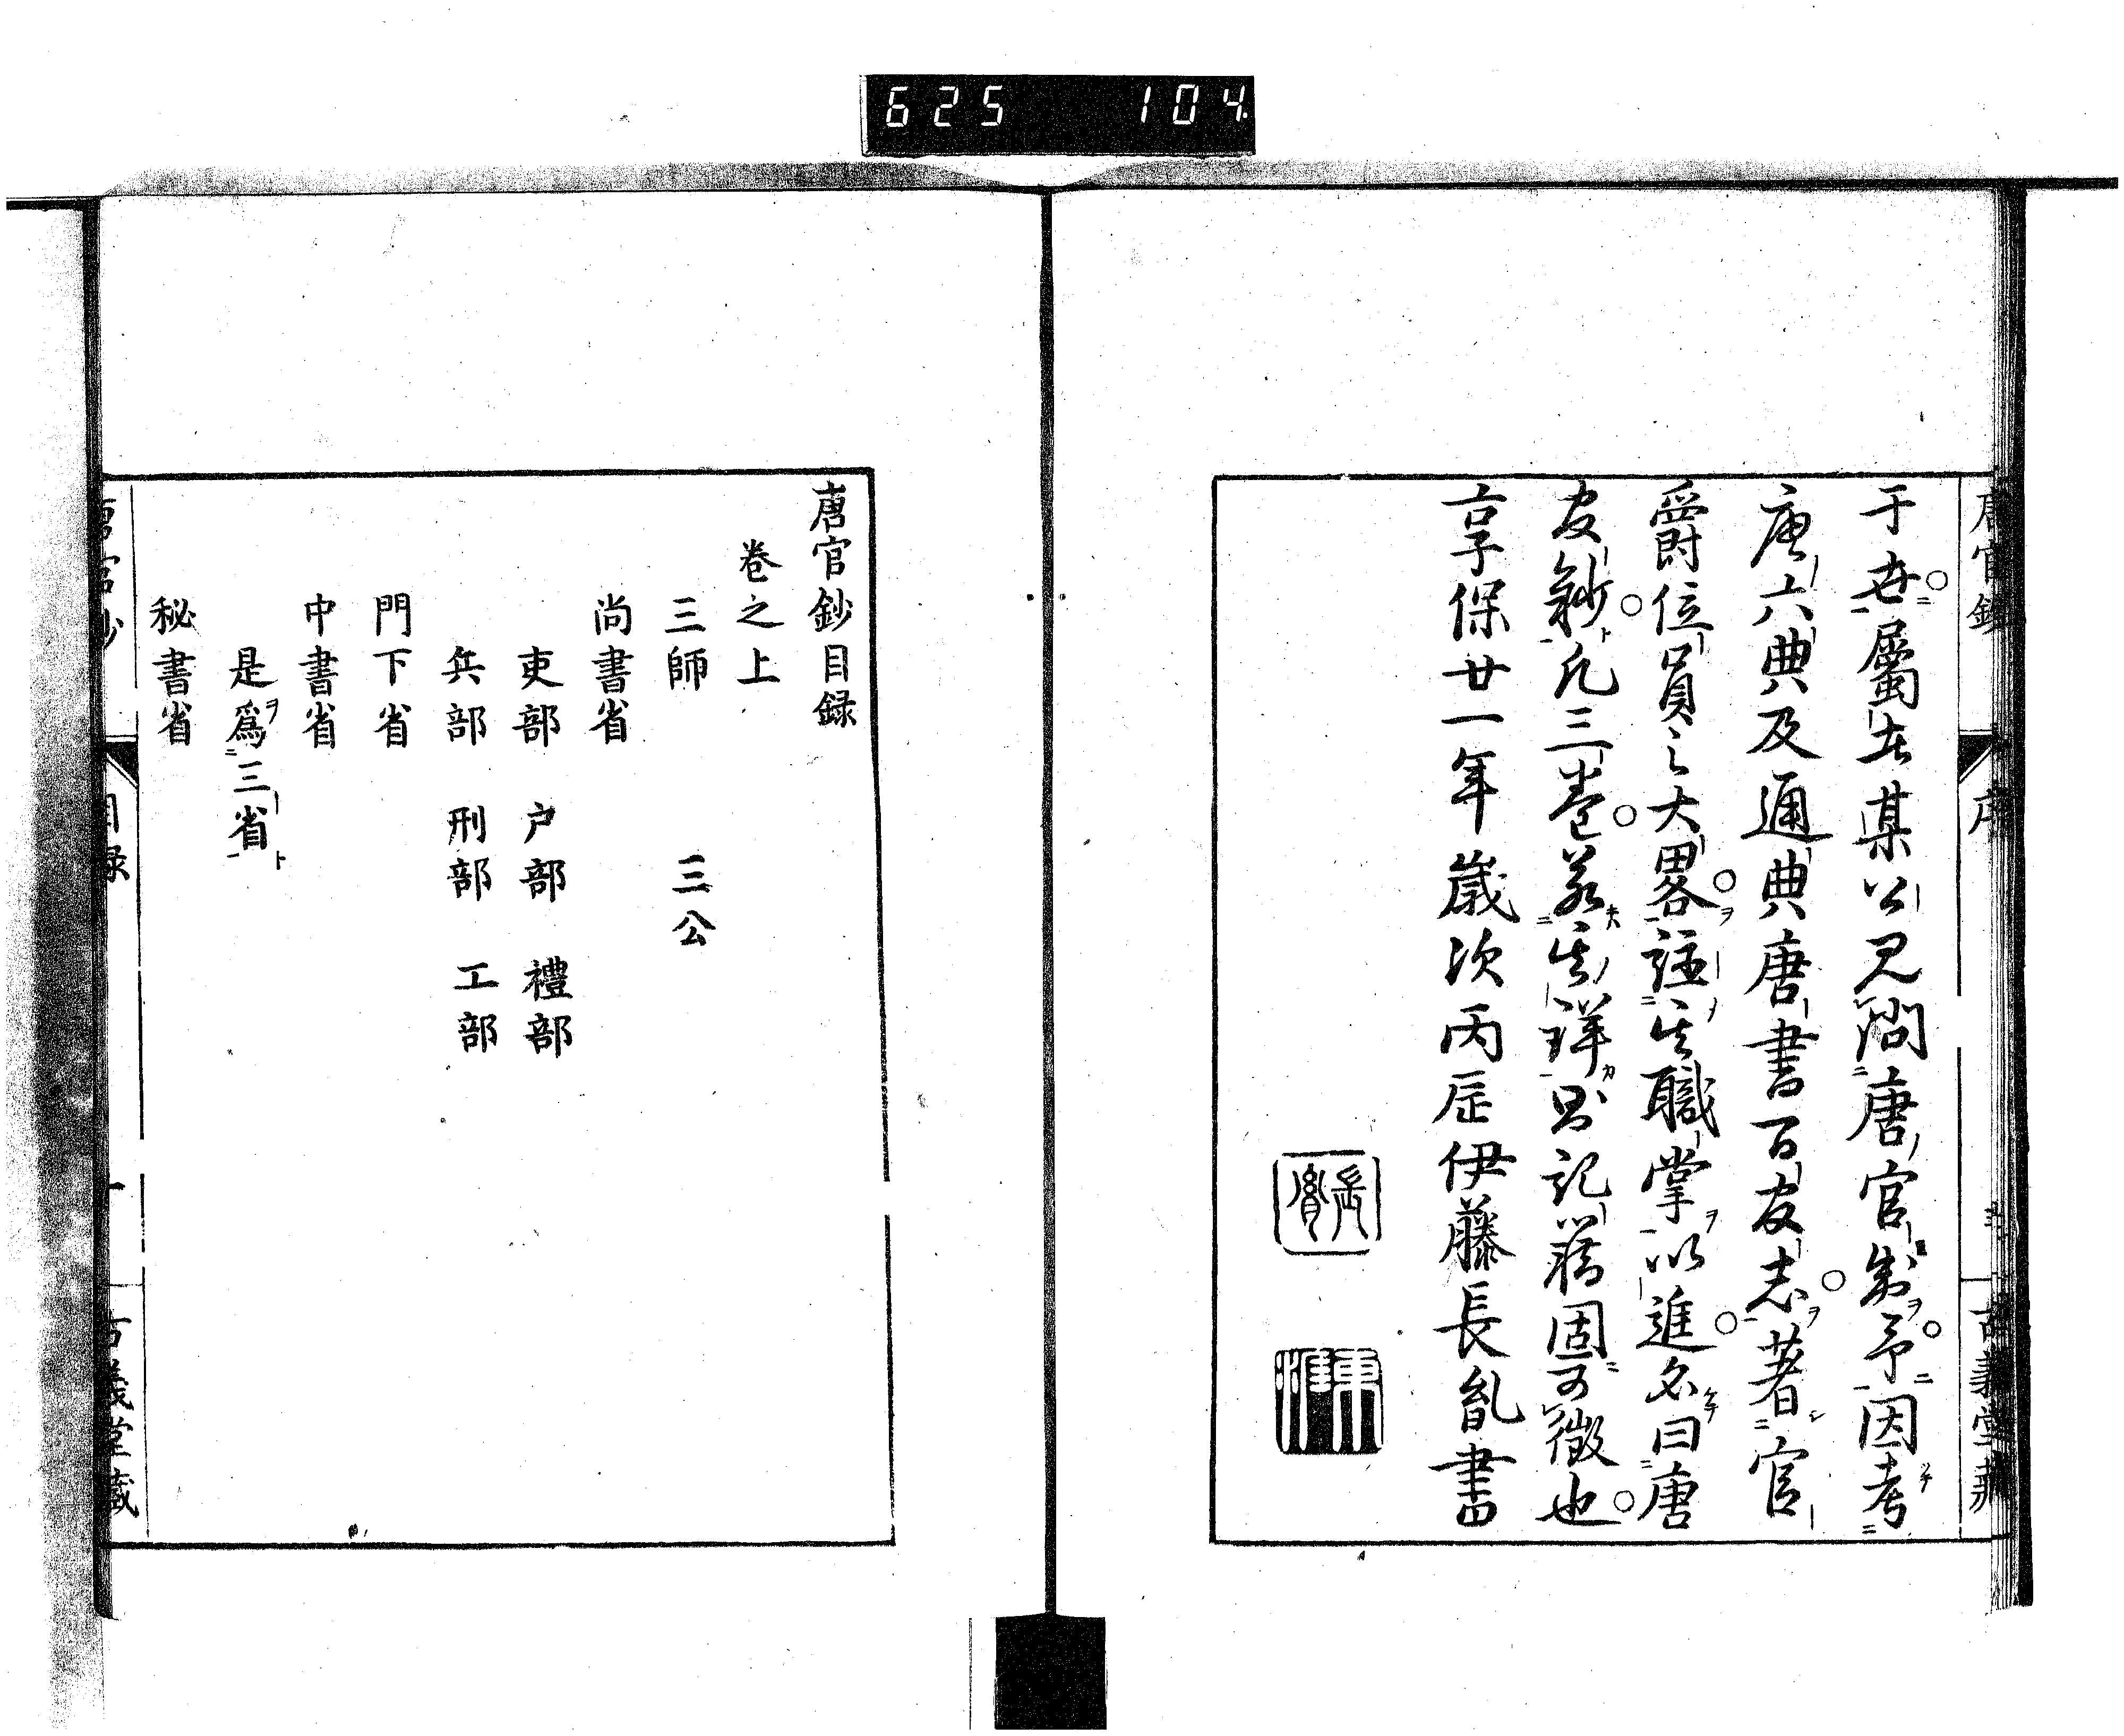 625 104
唐官鈔
序
古義堂蔵
于世屬在某公見問唐官制予因考
唐六典及通典唐書百官志著官
爵位員之大畧註其職掌以進名曰唐
官鈔凡三卷若其詳則記籍固可徵也
享保廿一年歳次丙辰伊藤長胤書
長胤
東涯
唐官鈔目録
卷之上
三師 三公
尚書省
吏部 户部 禮部
兵部 刑部 工部
門下省
中書省
是爲ヲ二三省ト一
秘書省
唐官鈔
目録
一
古義堂蔵